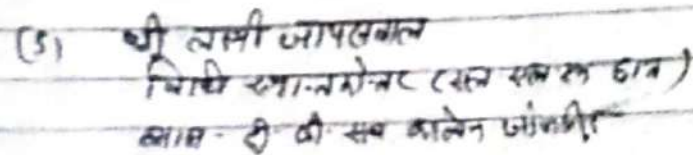 (5) श्री लक्ष्मी जायसवाल
विधि स्नातकोत्तर (एल एल एम छात्र)
टी सी एल कालेज जांजगीर